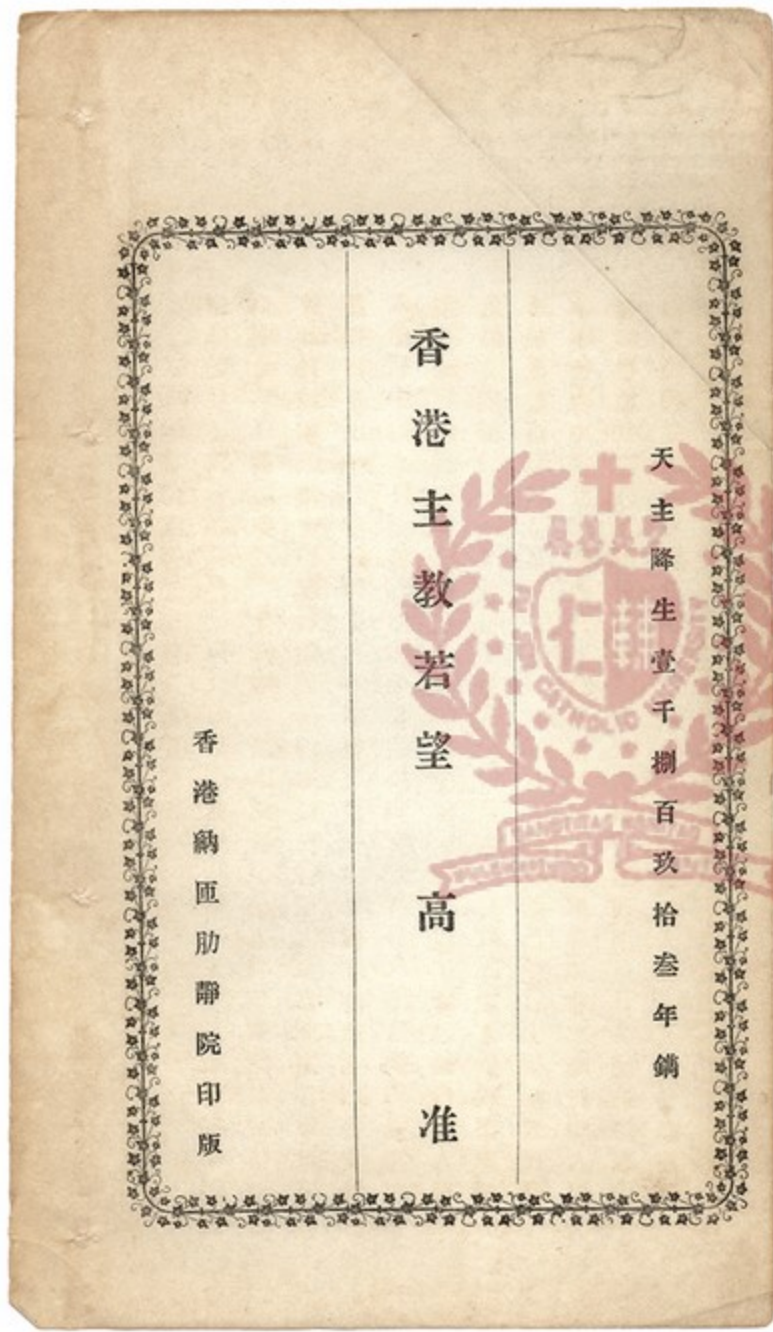 天主降生壹千捌百玖拾叁年鐫
香港主教若望高准
香港納匝肋靜院印版
真善美聖
仁
CATHOLIC